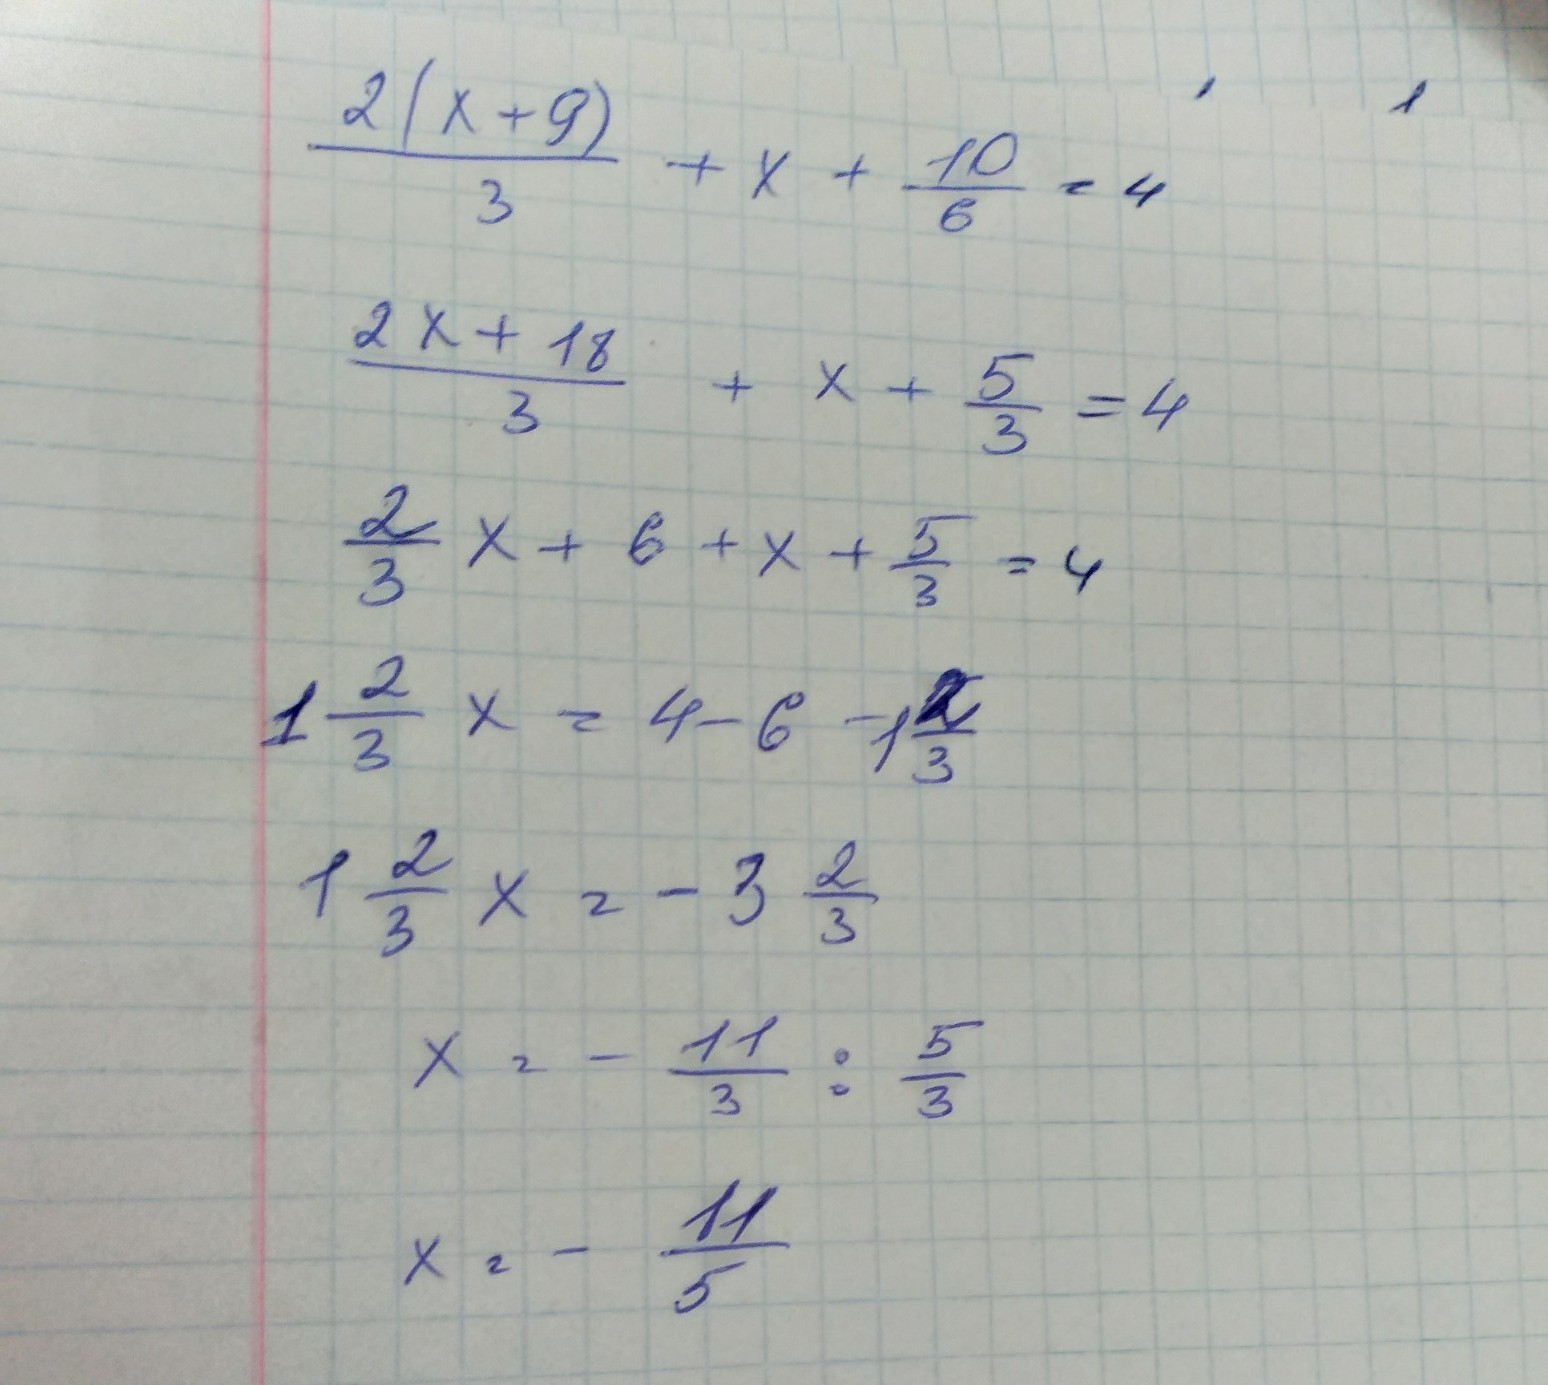 2(x+9)/3 + x + 10/6 = 4
2x+18/3 + x + 5/3 = 4
2/3 x + 6 + x + 5/3 = 4
1 2/3 x = 4 - 6 - 1 2/3
1 2/3 x = - 3 2/3
x = - 11/3 : 5/3
x = - 11/5